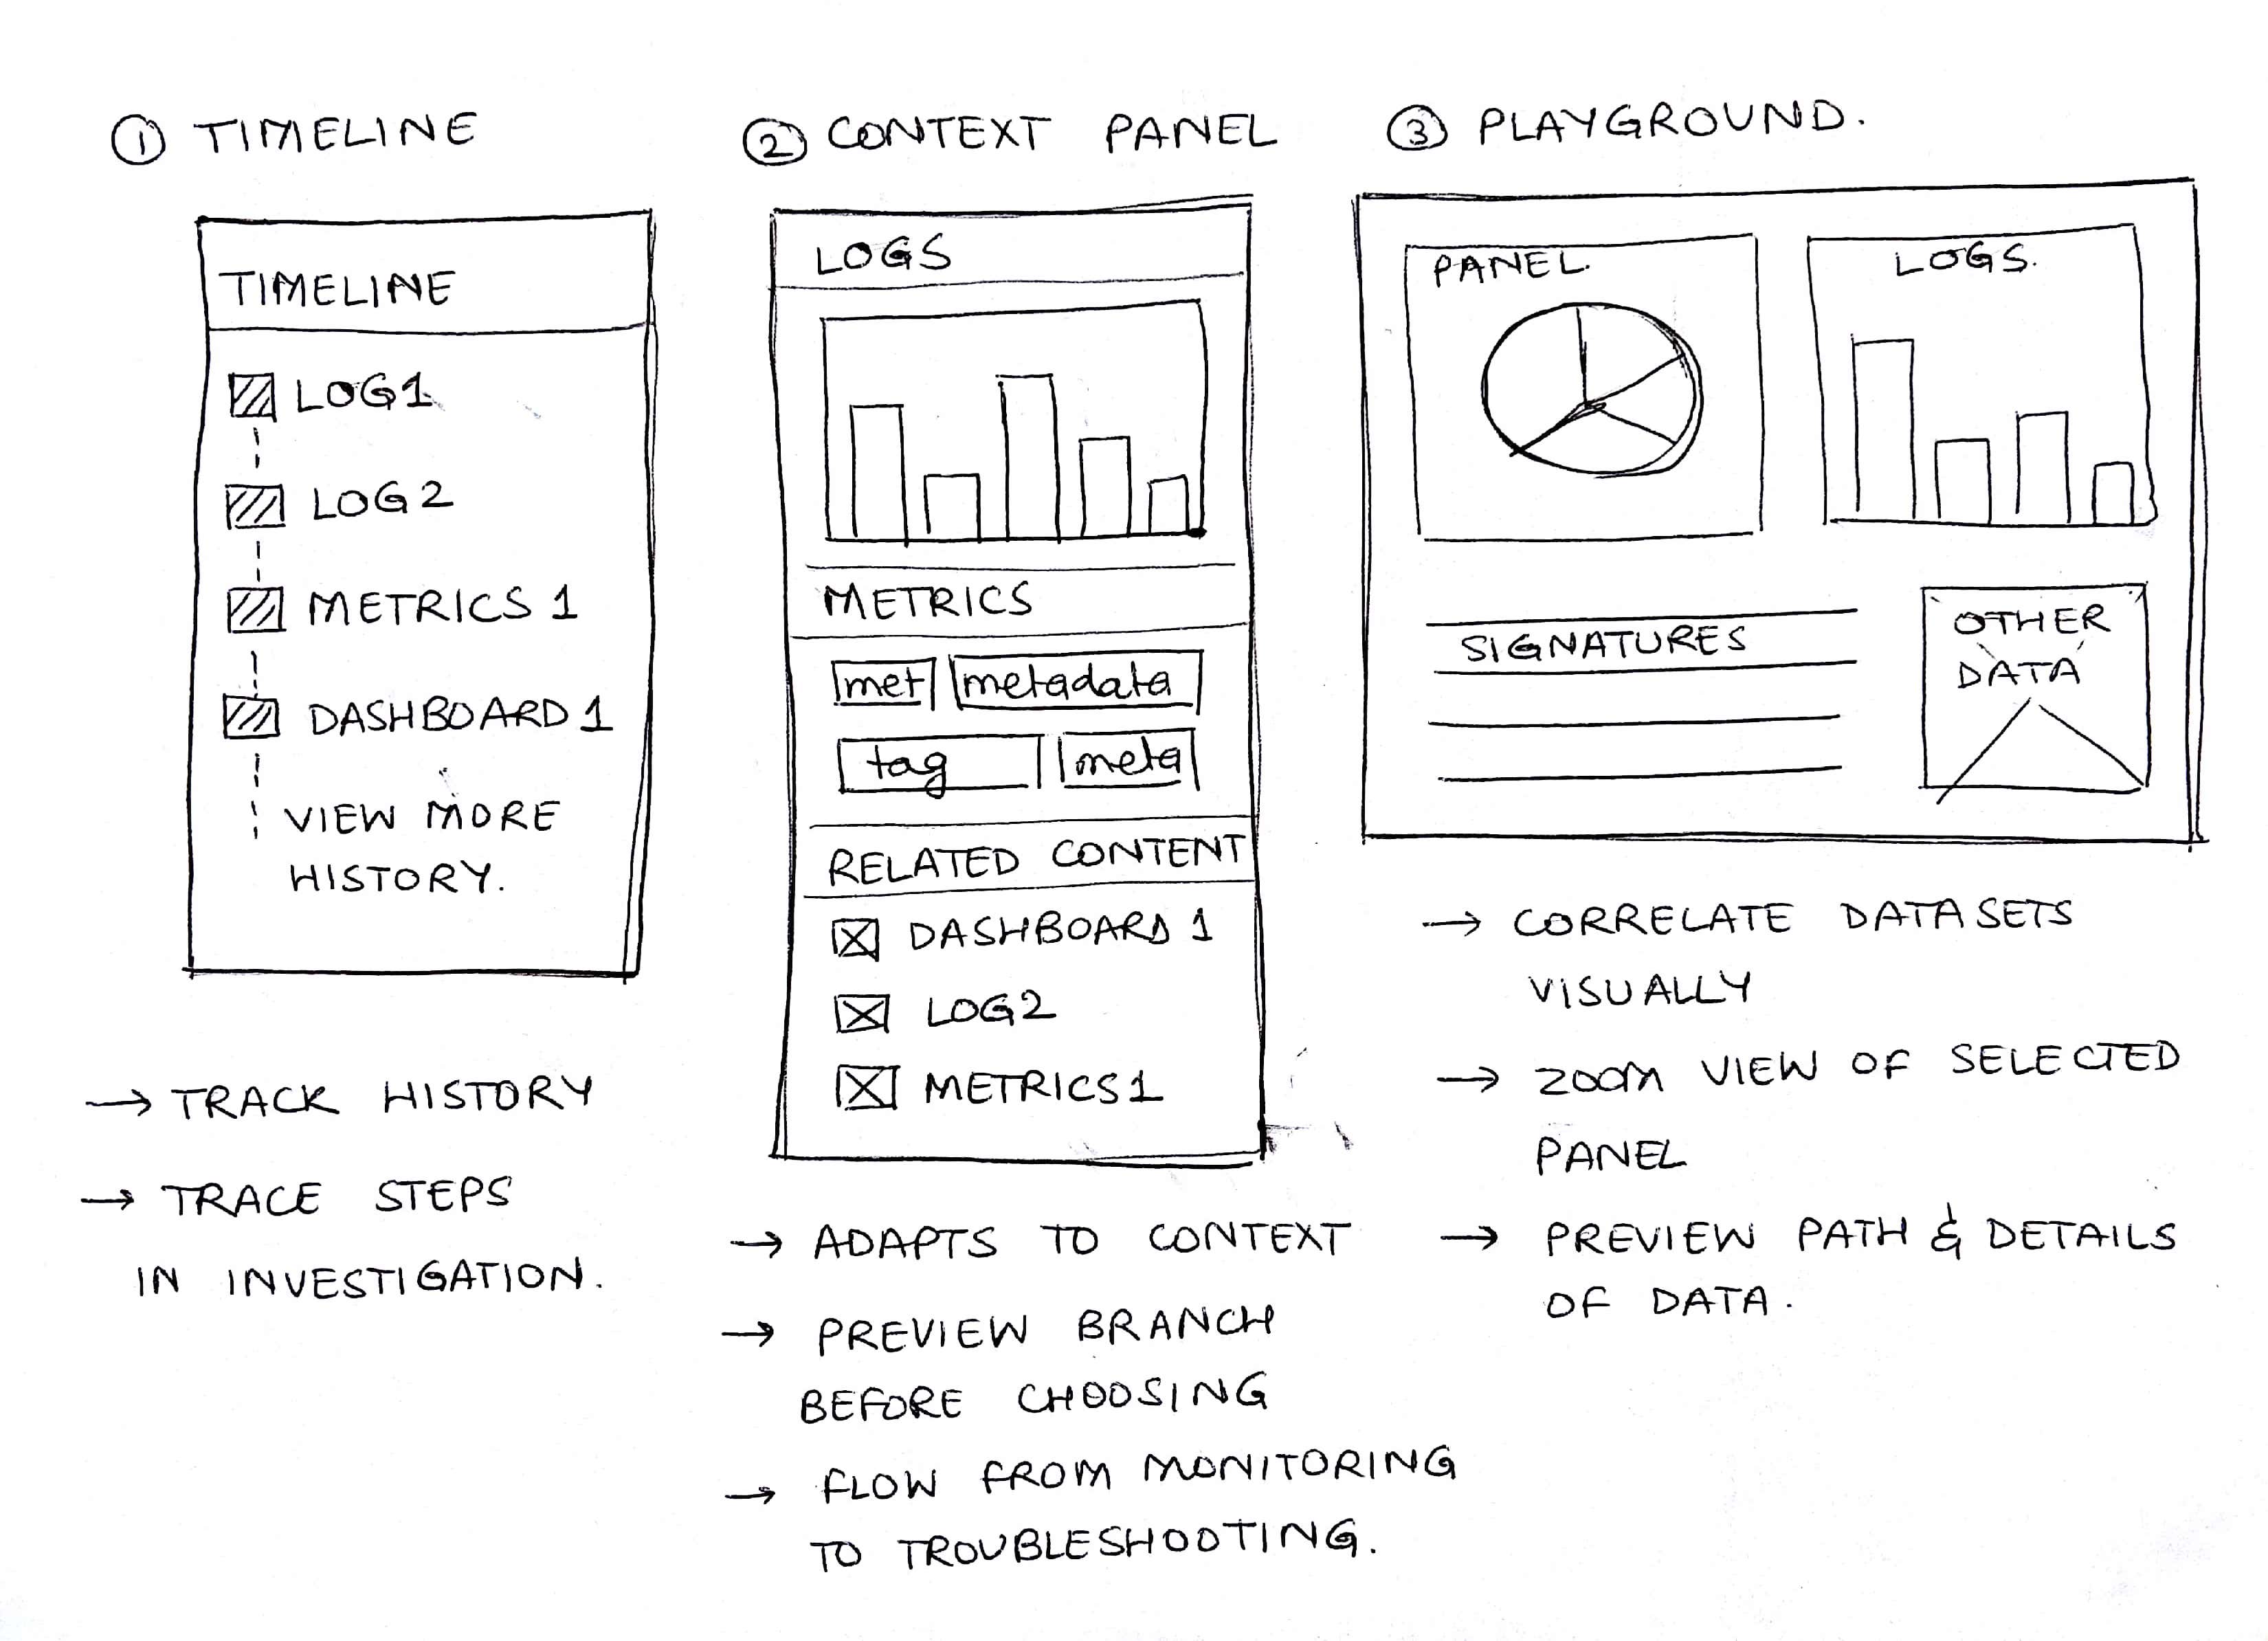 ① TIMELINE
TIMELINE
LOG1
LOG2
METRICS 1
DASHBOARD 1
VIEW MORE
HISTORY.
→ TRACK HISTORY
→ TRACE STEPS
IN INVESTIGATION.
② CONTEXT PANEL
LOGS
METRICS
met metadata
tag meta
RELATED CONTENT
DASHBOARD 1
LOG2
METRICS1
→ ADAPTS TO CONTEXT
→ PREVIEW BRANCH
BEFORE CHOOSING
→ FLOW FROM MONITORING
TO TROUBLESHOOTING.
③ PLAYGROUND.
PANEL.
LOGS.
SIGNATURES
OTHER
DATA
→ CORRELATE DATASETS
VISUALLY
→ ZOOM VIEW OF SELECTED
PANEL
→ PREVIEW PATH & DETAILS
OF DATA.